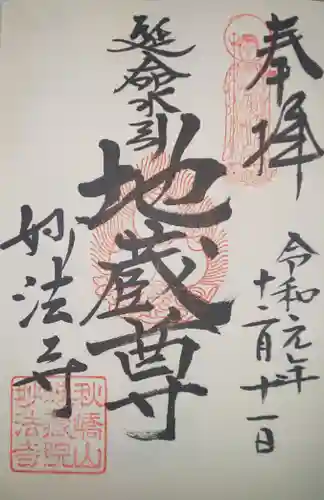 奉拝
令和元年
十二月十一日
延命水引
地蔵尊
妙法寺
秋嶹山
妙法寺